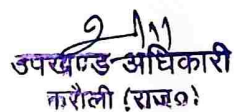 उपखण्ड-अधिकारी
करौली (राज०)